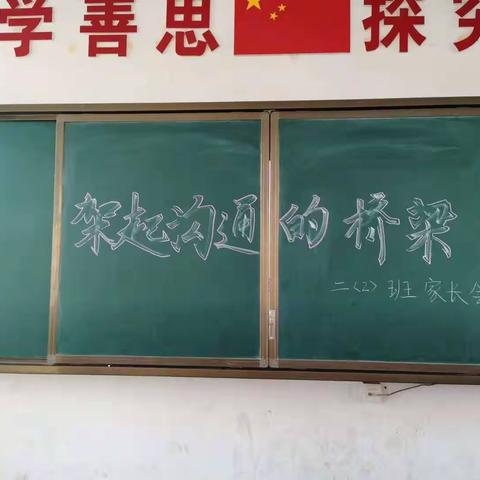 学善思 探究
架起沟通的桥梁
二(2)班家长会